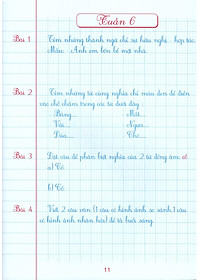 Tuần 6
Bài 1 Tìm những thành ngữ chỉ sự hữu nghị, hợp tác.
Mẫu: Anh em bốn bể một nhà.
Bài 2 Tìm những từ cùng nghĩa chỉ màu đen để điền
vào chỗ chấm trong các từ dưới đây
Bảng... Mắt...
Vải... Ngựa...
Đũa... Chó...
Bài 3 Đặt câu để phân biệt nghĩa của 2 từ đồng âm:
a)
b)
Bài 4 Viết 2 câu văn (1 câu có hình ảnh so sánh, 1 câu
có hình ảnh nhân hóa) để tả buổi sáng.
11